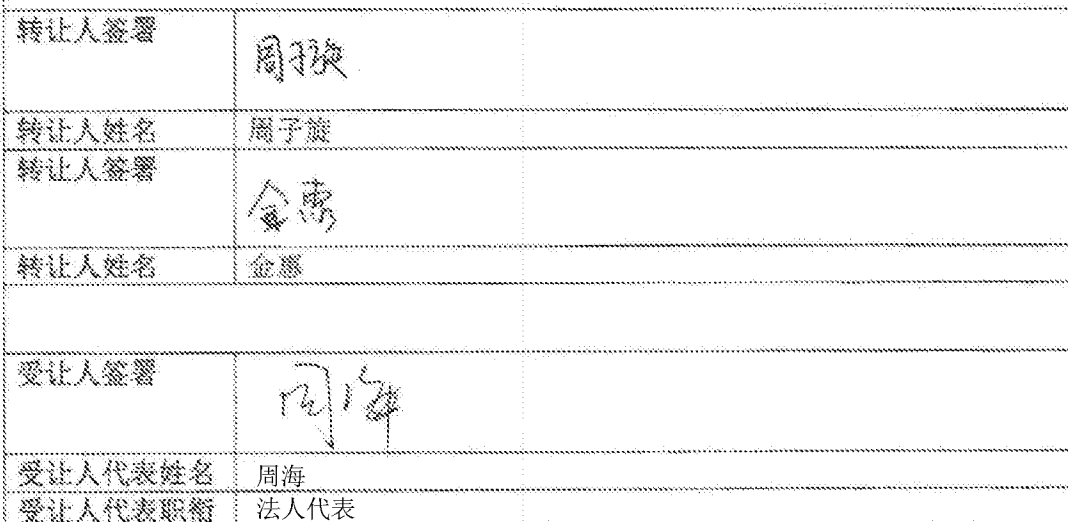 转让人签署 周子旋
转让人姓名 周子旋
转让人签署 金惠
转让人姓名 金惠
受让人签署 周海
受让人代表姓名 周海
受让人代表职衔 法人代表